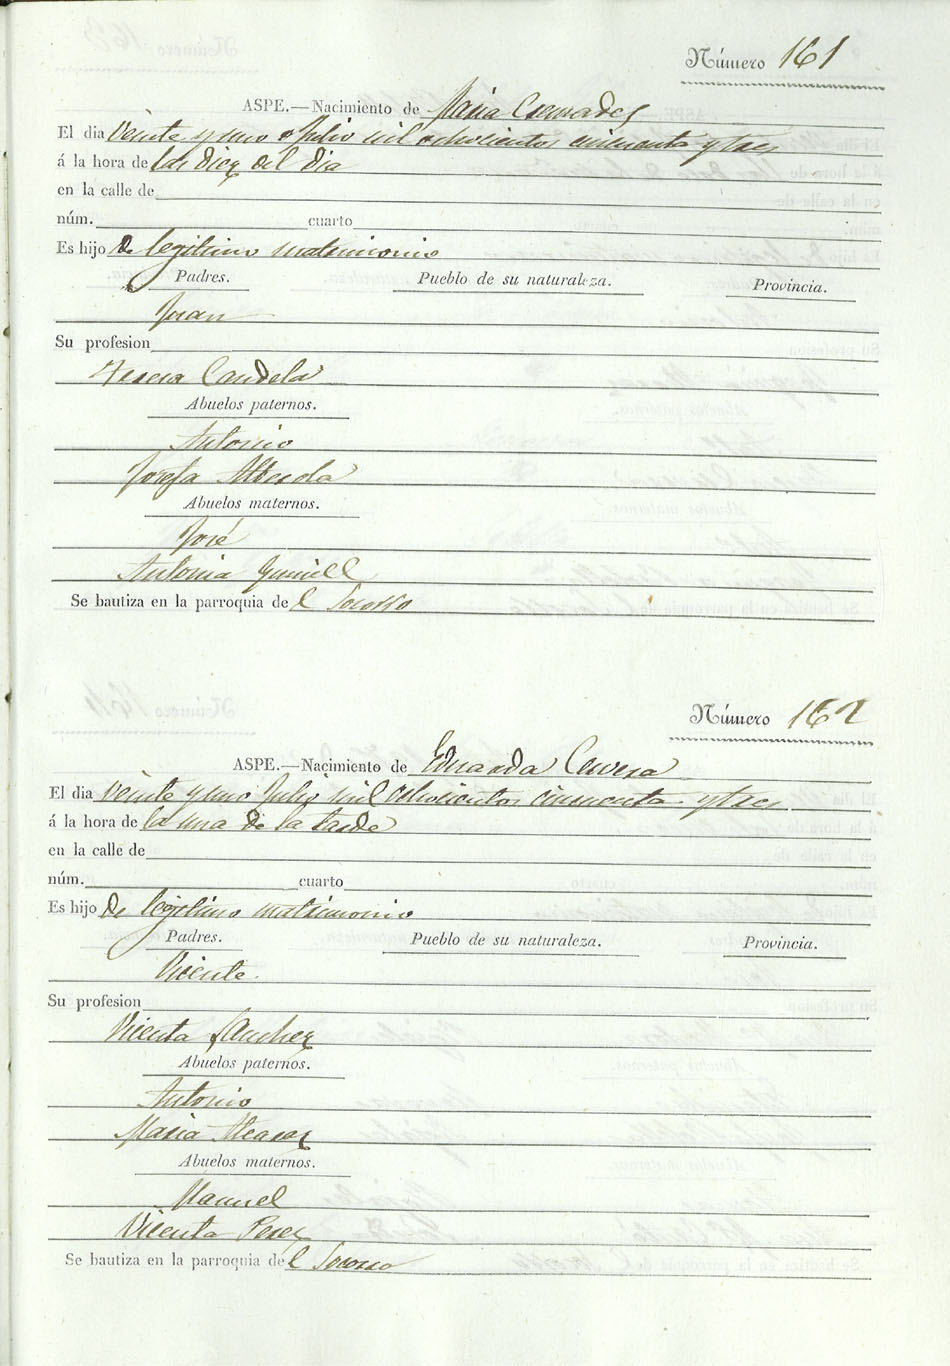 Número 161
ASPE.—Nacimiento de Maria Cremades
El dia Veinte y uno Julio mil ochocientos cincuenta y tres
á la hora de las Diez del Dia
en la calle de
núm. cuarto
Es hijo De legitimo matrimonio
Padres. Pueblo de su naturaleza. Provincia.
Juan
Su profesion
Teresa Candela
Abuelos paternos.
Antonio
Josefa
Abuelos maternos.
José
Antonia
Se bautiza en la parroquia de l Socorro
Número 162
ASPE.—Nacimiento de Eduarda Cervera
El dia Veinte y uno Julio mil ochocientos cincuenta y tres
á la hora de la una de la tarde
en la calle de
núm. cuarto
Es hijo de legitimo matrimonio
Padres. Pueblo de su naturaleza. Provincia.
Vicente
Su profesion
Vicenta Sanchez
Abuelos paternos.
Antonio
Maria Alcaraz
Abuelos maternos.
Manuel
Vicenta Perez
Se bautiza en la parroquia de l Socorro